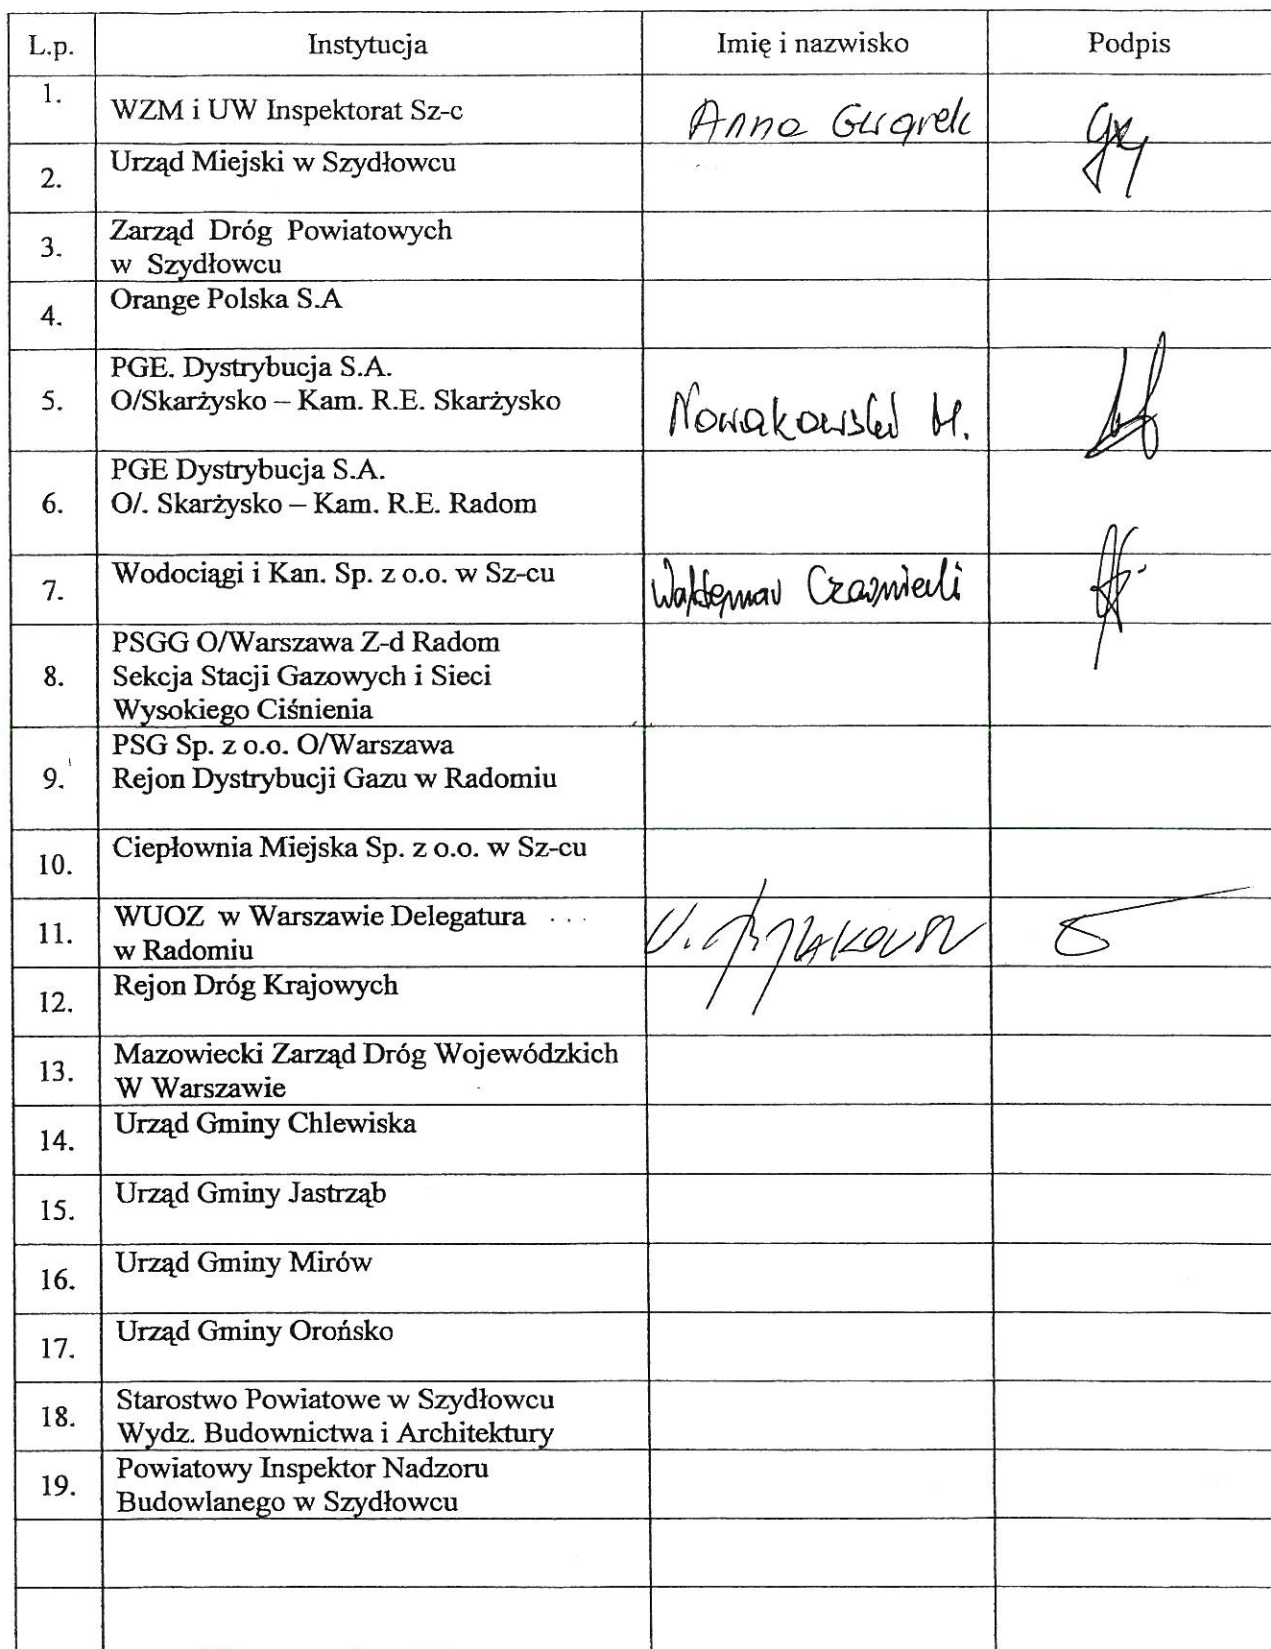 L.p. Instytucja Imię i nazwisko Podpis
1. WZM i UW Inspektorat Sz-c Anna Gwarek
2. Urząd Miejski w Szydłowcu
3. Zarząd Dróg Powiatowych
w Szydłowcu
4. Orange Polska S.A
PGE. Dystrybucja S.A.
5. O/Skarżysko – Kam. R.E. Skarżysko Nowakowski M.
PGE Dystrybucja S.A.
6. O/. Skarżysko – Kam. R.E. Radom
7. Wodociągi i Kan. Sp. z o.o. w Sz-cu Waldemar
PSGG O/Warszawa Z-d Radom
8. Sekcja Stacji Gazowych i Sieci
Wysokiego Ciśnienia
PSG Sp. z o.o. O/Warszawa
9. Rejon Dystrybucji Gazu w Radomiu
10. Ciepłownia Miejska Sp. z o.o. w Sz-cu
11. WUOZ w Warszawie Delegatura
w Radomiu
12. Rejon Dróg Krajowych
13. Mazowiecki Zarząd Dróg Wojewódzkich
W Warszawie
14. Urząd Gminy Chlewiska
15. Urząd Gminy Jastrząb
16. Urząd Gminy Mirów
17. Urząd Gminy Orońsko
18. Starostwo Powiatowe w Szydłowcu
Wydz. Budownictwa i Architektury
19. Powiatowy Inspektor Nadzoru
Budowlanego w Szydłowcu